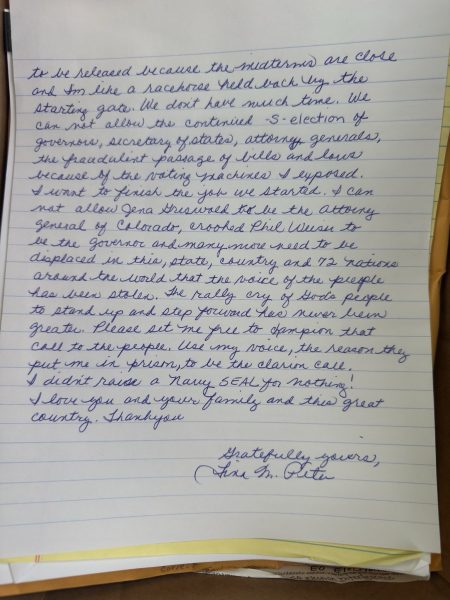 to be released because the midterms are close
and Im like a racehouse held back by the
starting gate. We dont have much time. We
can not allow the continued S-election of
governors, secretary of states, attorney generals,
the fraudulint passage of bills and laws
because of the voting machines I exposed.
I want to finish the job we started. I can
not allow Jena Griswold to be the Attorny
general of Colorado, crooked Phil Weiser to
be the governor and many more need to be
displaced in this, state, country and 72 nations
around the world that the voice of the people
has been stolen. The rally cry of Gods people
to stand up and step forward has never been
greater. Please set me free to champion that
call to the people. Use my voice, the reason they
put me in prison, to be the clarion call.
I didn't raise a Navy SEAL for nothing!
I love you and your family and this great
country. Thankyou
Gratefully yours,
Tina M. Peters